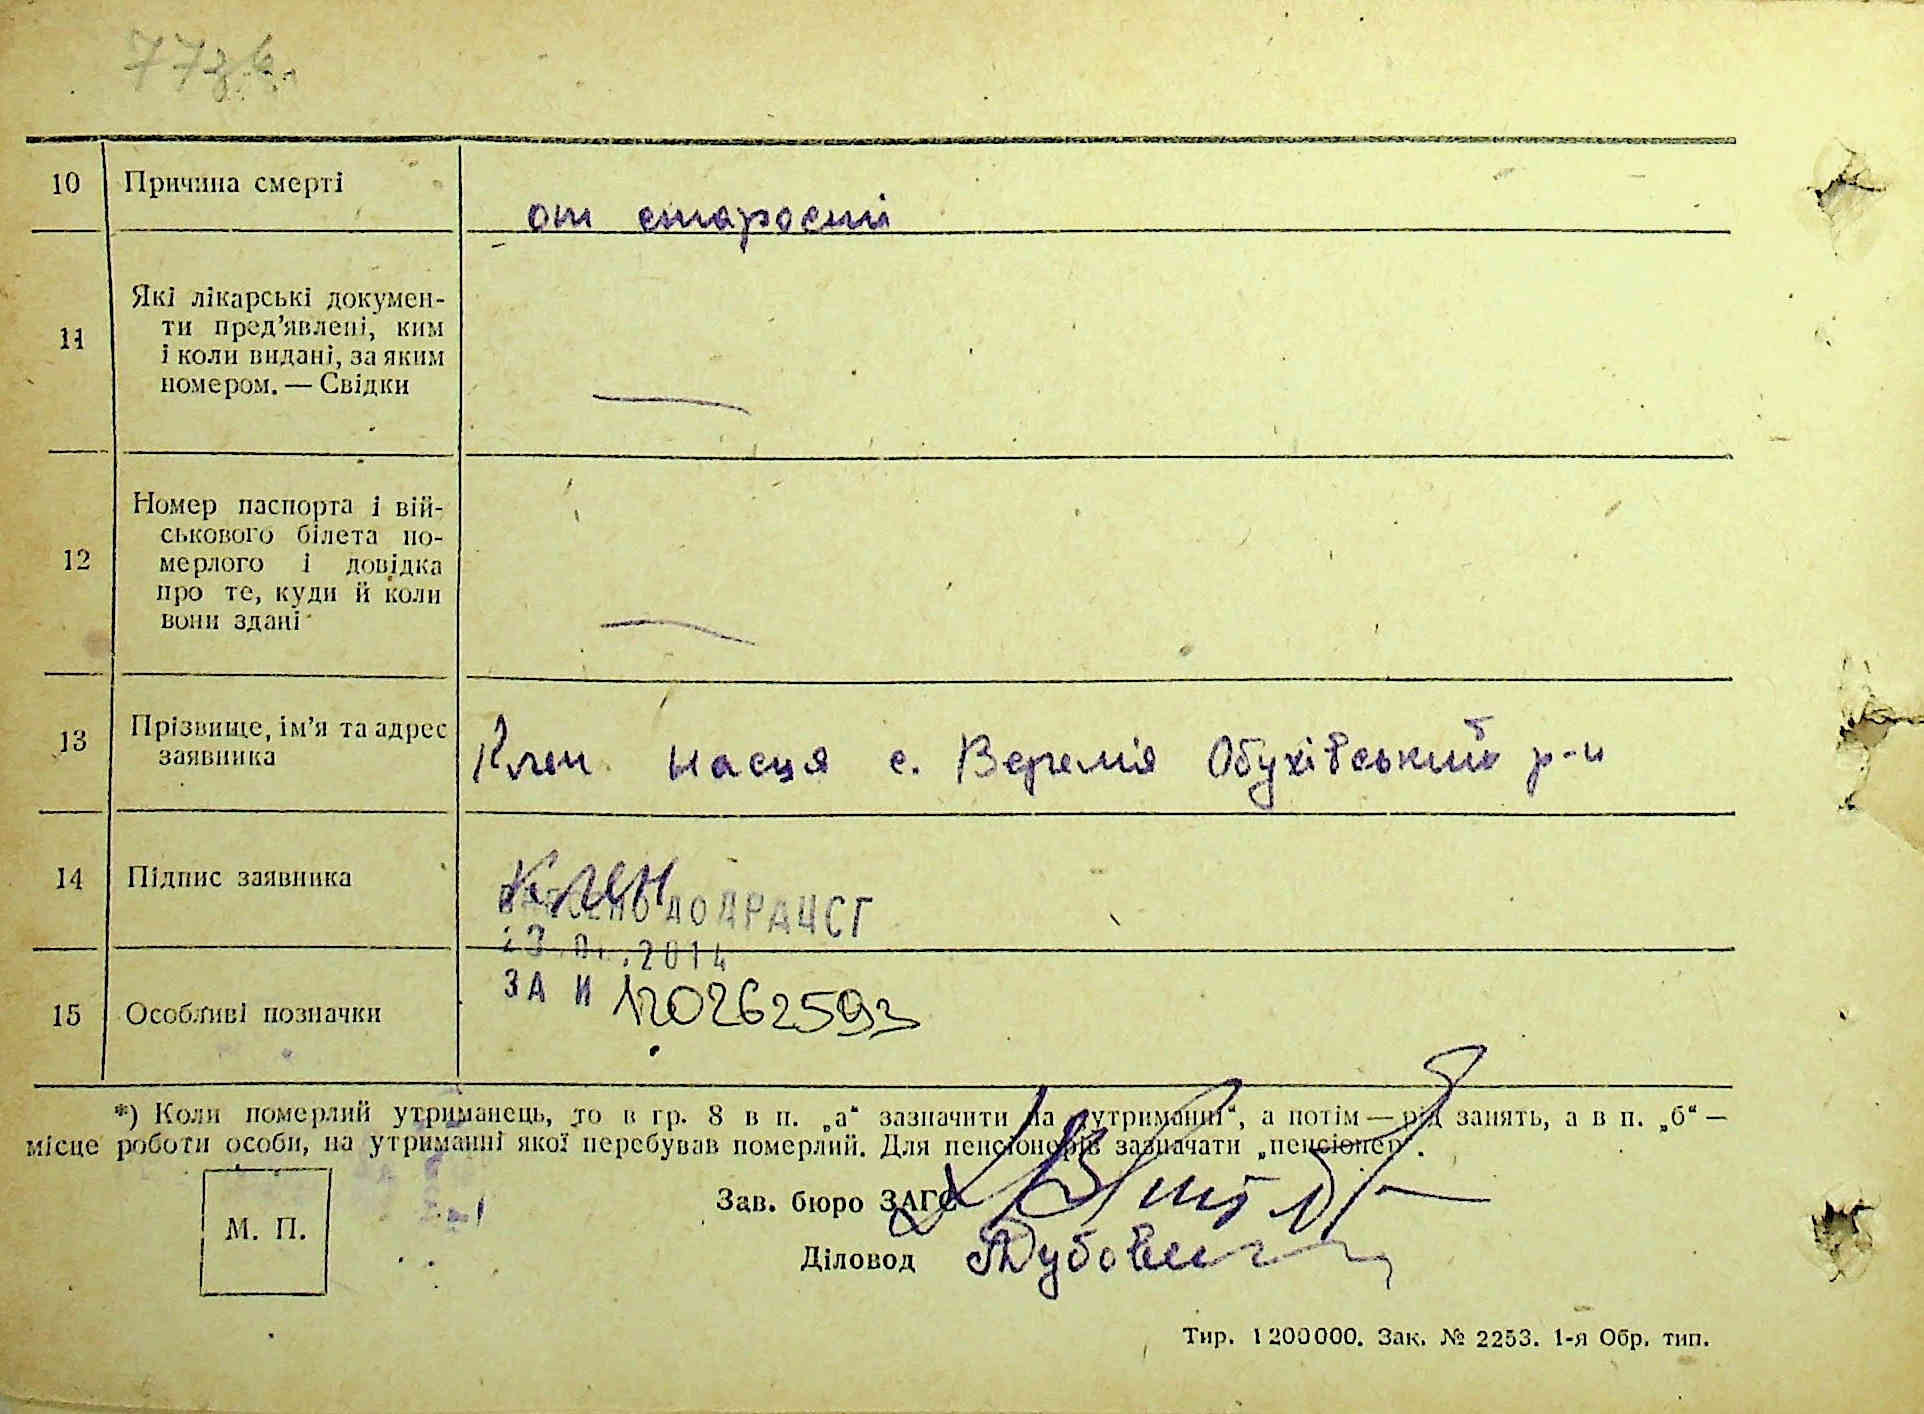 77зв.
10 Причина смерті
от старости
11 Які лікарські докумен-
ти пред’явлені, ким
і коли видані, за яким
номером. — Свідки
—
12 Номер паспорта і вій-
ськового білета по-
мерлого і довідка
про те, куди й коли
вони здані
—
13 Прізвище, ім’я та адрес
заявника
Клен Насця с. Веремія Обухівський р-н
14 Підпис заявника
Клен
ДО ДРАЦСГ
2014
15 Особливі позначки
ЗА И 120262593
*) Коли померлий утриманець, то в гр. 8 в п. „а“ зазначити „на утриманні“, а потім — рід занять, а в п. „б“ —
місце роботи особи, на утриманні якої перебував померлий. Для пенсіонерів зазначати „пенсіонер“.
М. П.
Зав. бюро ЗАГС
Діловод
Тир. 1200000. Зак. № 2253. 1-я Обр. тип.